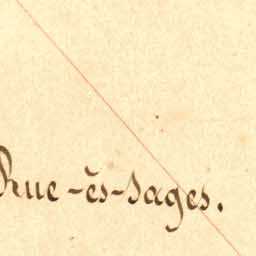 Rue-ès-Sages.